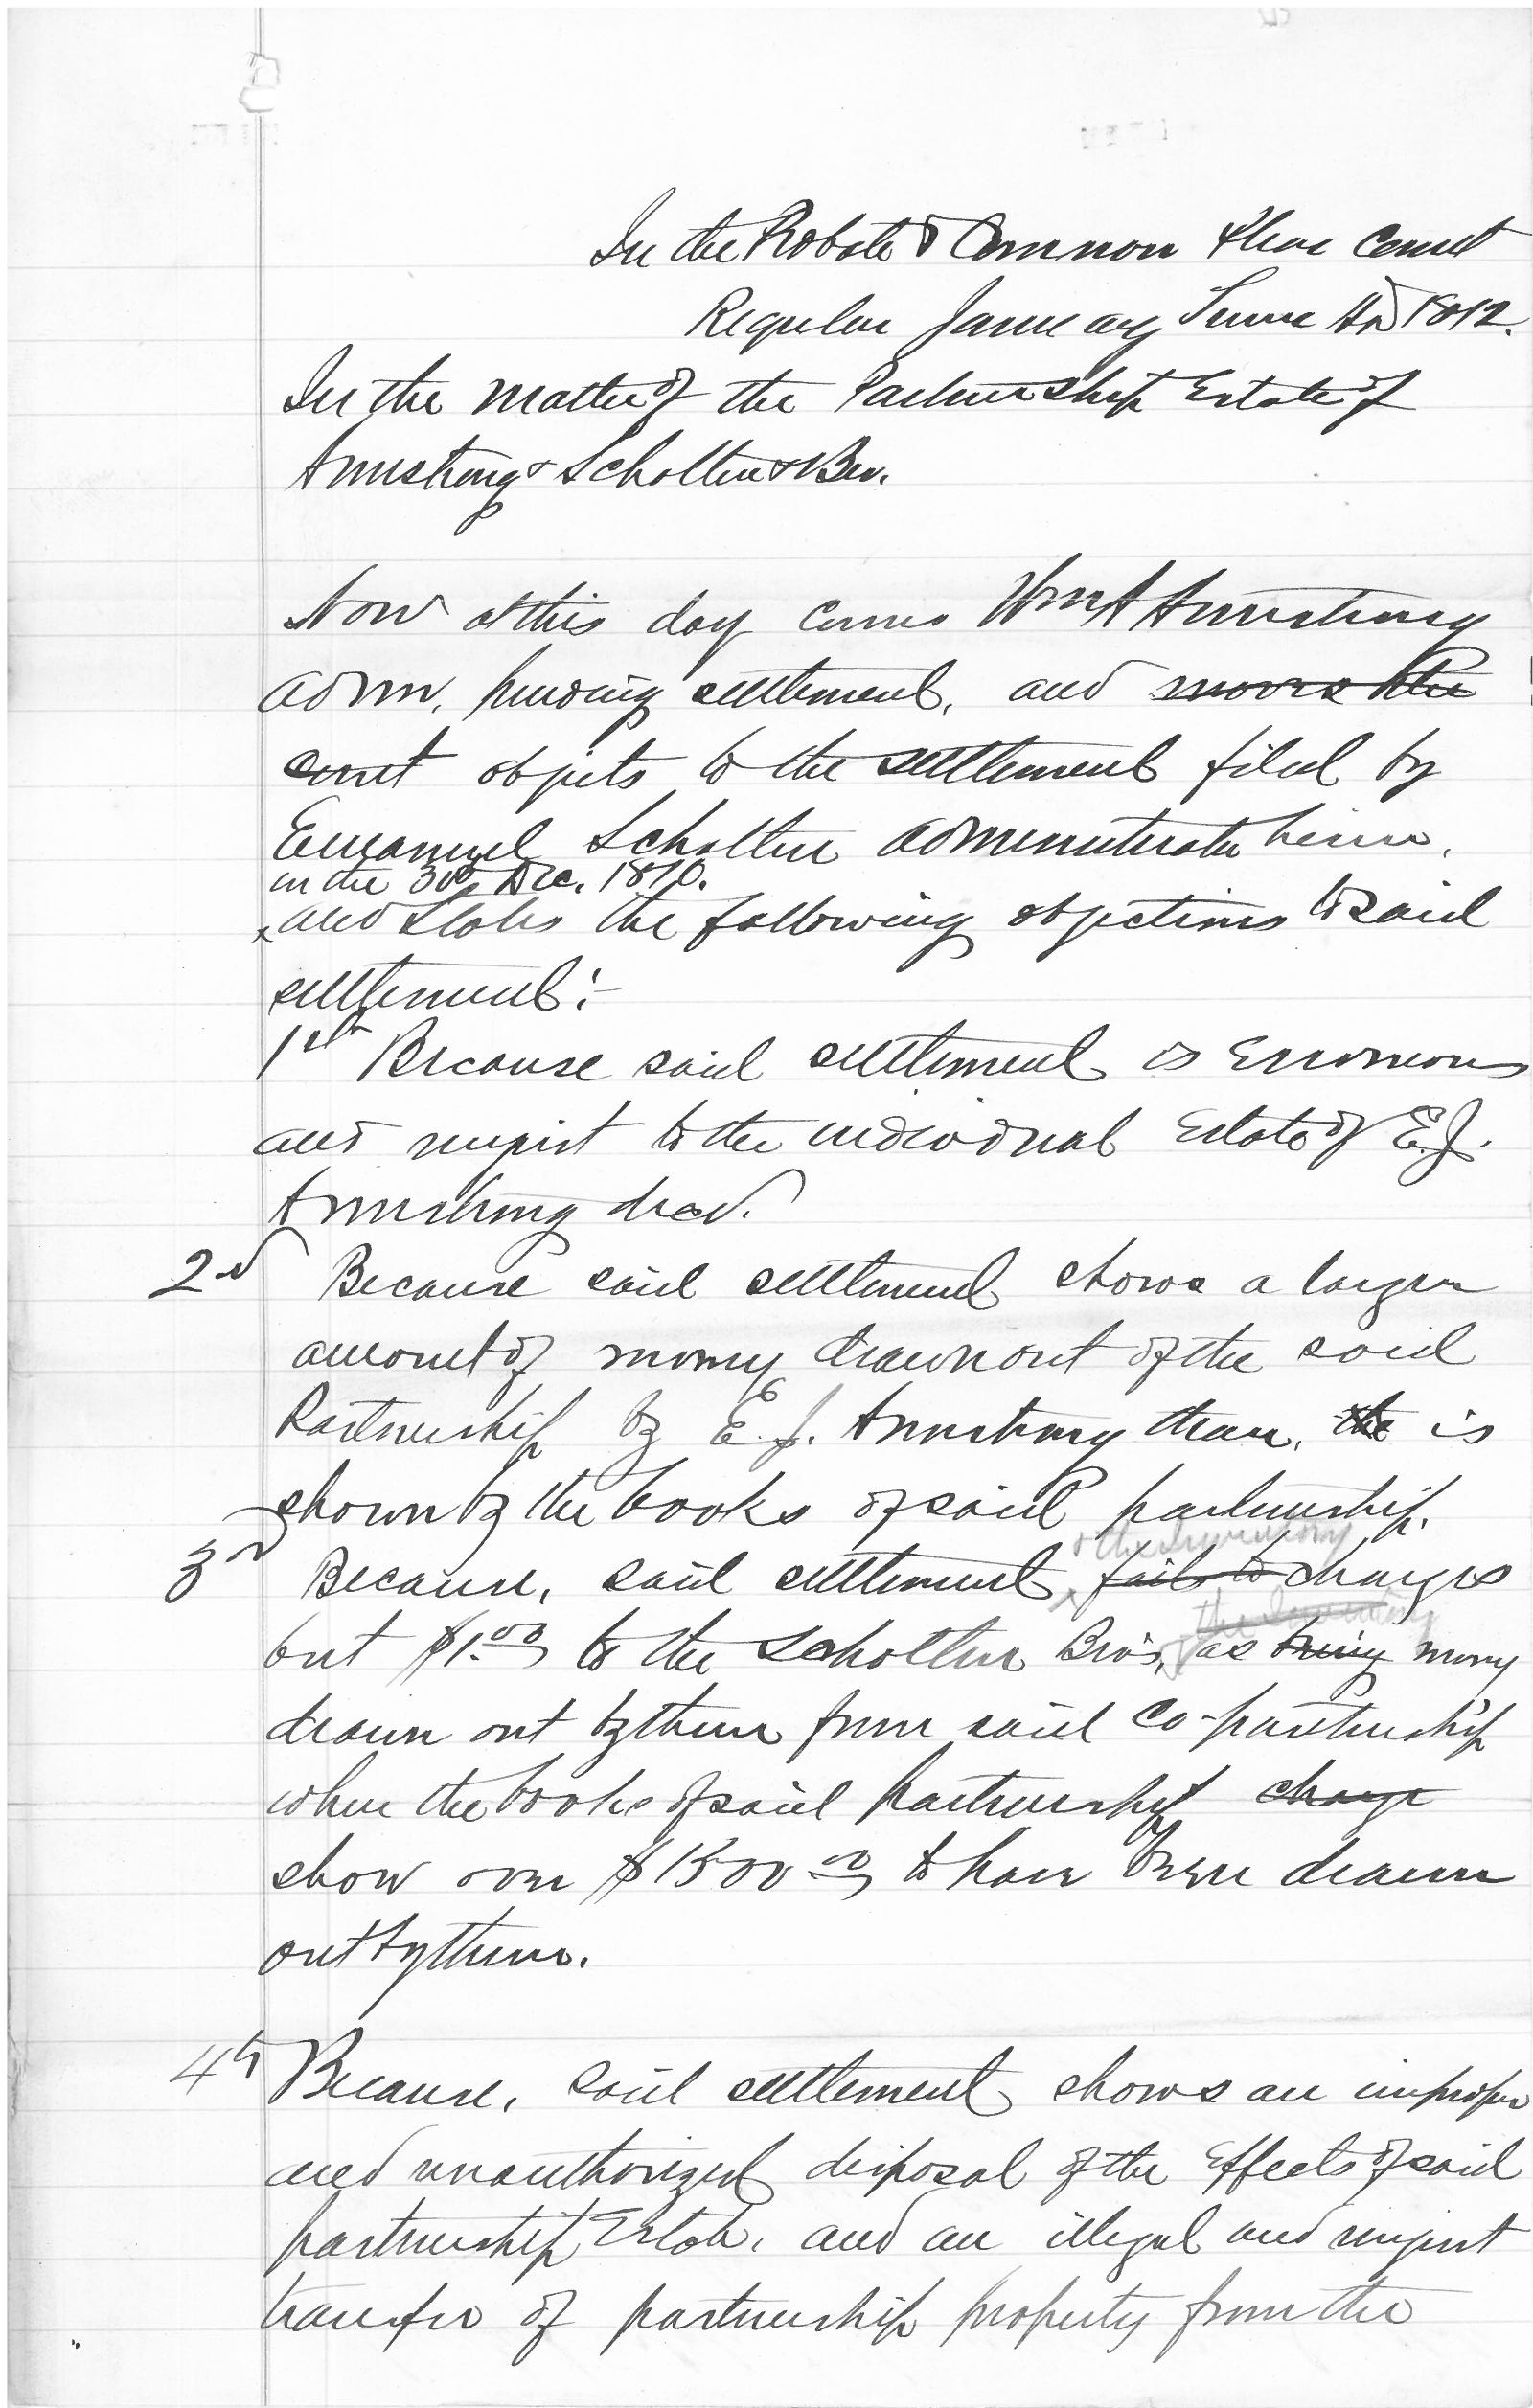 In the Probate & Common Pleas Court
Regular January Term AD 1872.
In the matter of the Partnership Estate of
Armstrong & Scholten & Bro.
Now at this day comes Wm A Armstrong
admr. pending settlement, and moves the
court objects to the settlement filed by
Emanuel Scholten administrator herein,
on the 30th Dec. 1870.
and states the following objections to said
settlement:-
1st Because said settlement is Erroneous
and unjust to the individual Estate of E.J.
Armstrong decd.
2d Because said settlement shows a larger
amount of money drawn out of the said
Partnership by E.J. Armstrong than, the is
shown by the books of said partnership.
& the Inventory
3d Because, said settlement, fails to charges
the Inventory
but $1.00 to the Scholten Bro's, as being money
drawn out by them from said Co-partnership
when the books of said Partnership charge
show over $1500.00 to have been drawn
out by them.
4th Because, said settlement shows an improper
and unauthorized disposal of the Effects of said
partnership Estate, and an illegal and unjust
transfer of partnership property from the